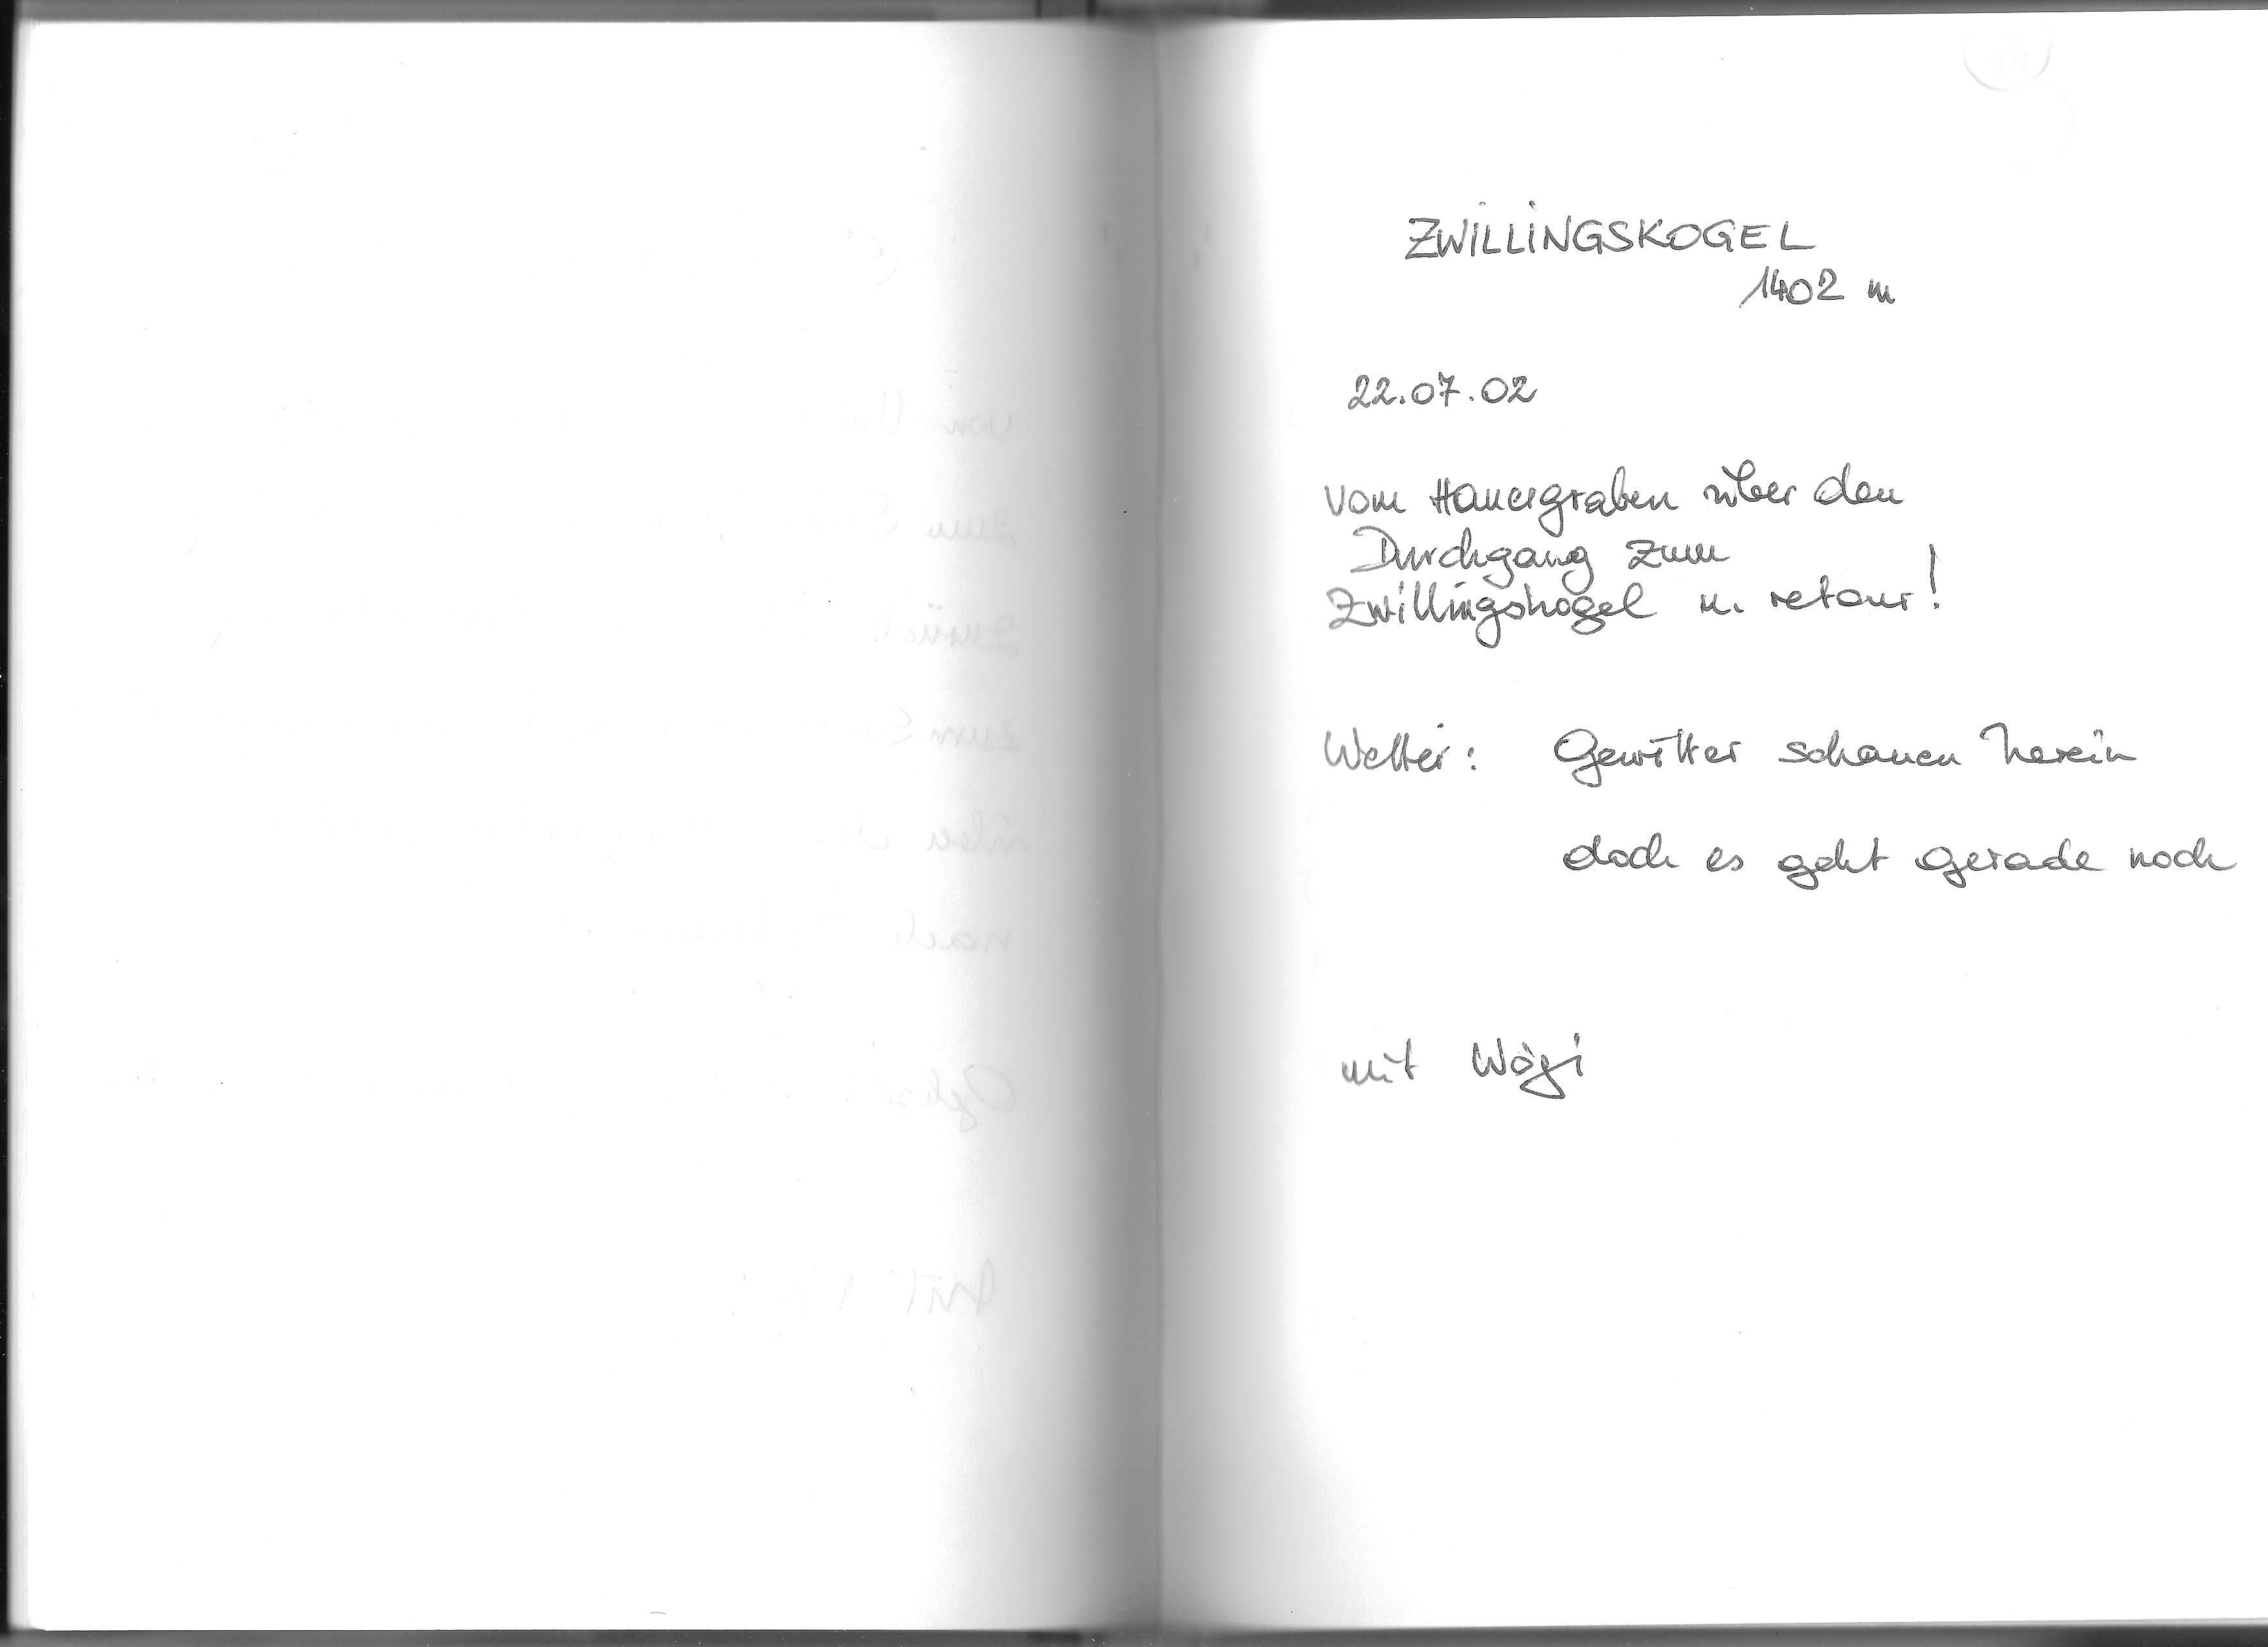 ZWILLINGSKOGEL
1402 m
22.07.02
vom Hauergraben über den
Durchgang zum
Zwillingskogel u. retour!
Wetter: Gewitter schauen herein
doch es geht gerade noch
mit Wögi